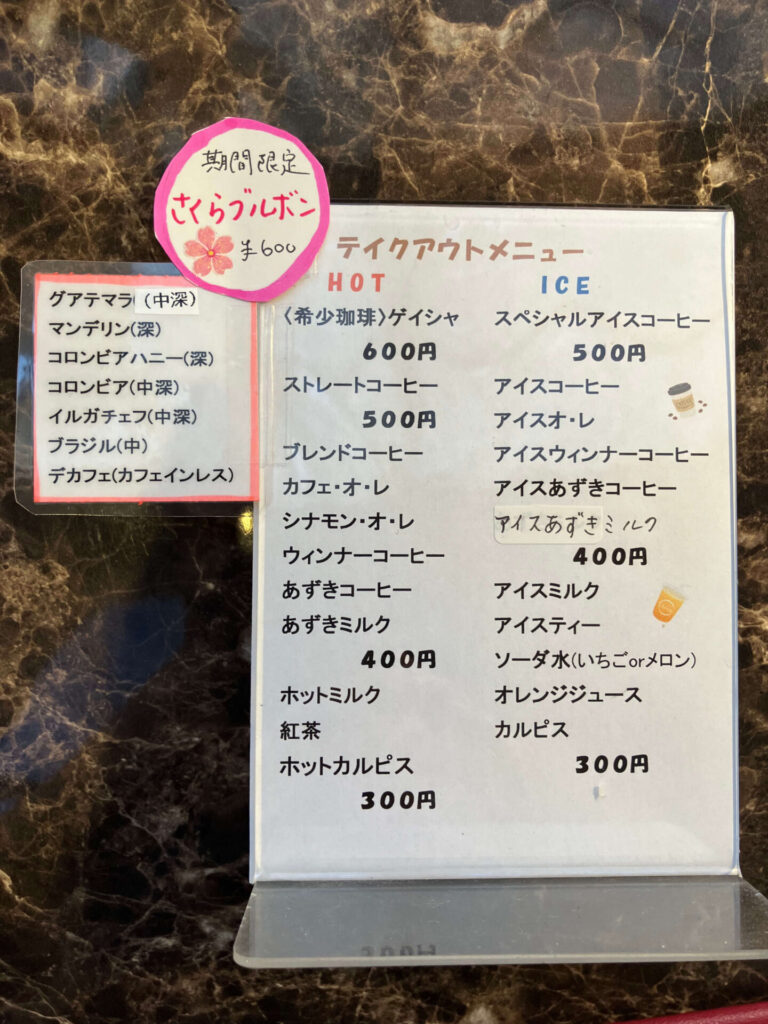 期間限定
さくらブルボン
¥600
グアテマラ(中深)
マンデリン(深)
コロンビアハニー(深)
コロンビア(中深)
イルガチェフ(中深)
ブラジル(中)
デカフェ(カフェインレス)
テイクアウトメニュー
HOT
〈希少珈琲〉ゲイシャ
600円
ストレートコーヒー
500円
ブレンドコーヒー
カフェ・オ・レ
シナモン・オ・レ
ウィンナーコーヒー
あずきコーヒー
あずきミルク
400円
ホットミルク
紅茶
ホットカルピス
300円
ICE
スペシャルアイスコーヒー
500円
アイスコーヒー
アイスオ・レ
アイスウィンナーコーヒー
アイスあずきコーヒー
アイスあずきミルク
400円
アイスミルク
アイスティー
ソーダ水(いちごorメロン)
オレンジジュース
カルピス
300円